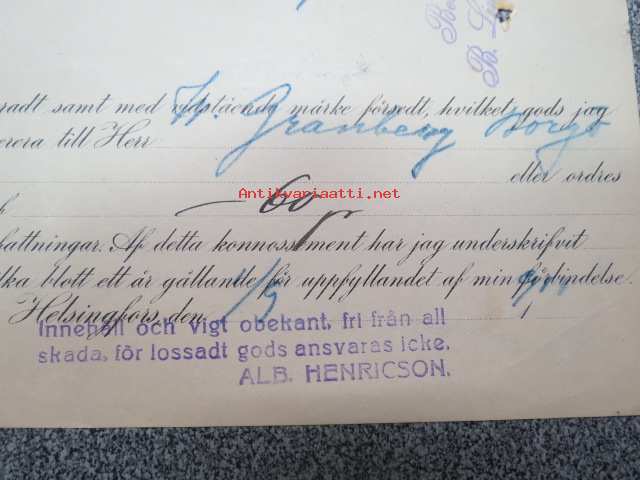 Be
B. Li
radt samt med vidstående märke försedt, hvilket gods jag
erera till Herr Granberg Borgå
eller ordres
Antikvariaatti.net
60 p
fattningar. Af detta konnossement har jag underskrifvit
lka blott ett är gällande för uppfyllandet af min förbindelse.
Helsingfors, den 1/9
Innehåll och vigt obekant, fri från all
skada, för lossadt gods ansvaras icke.
ALB. HENRICSON.